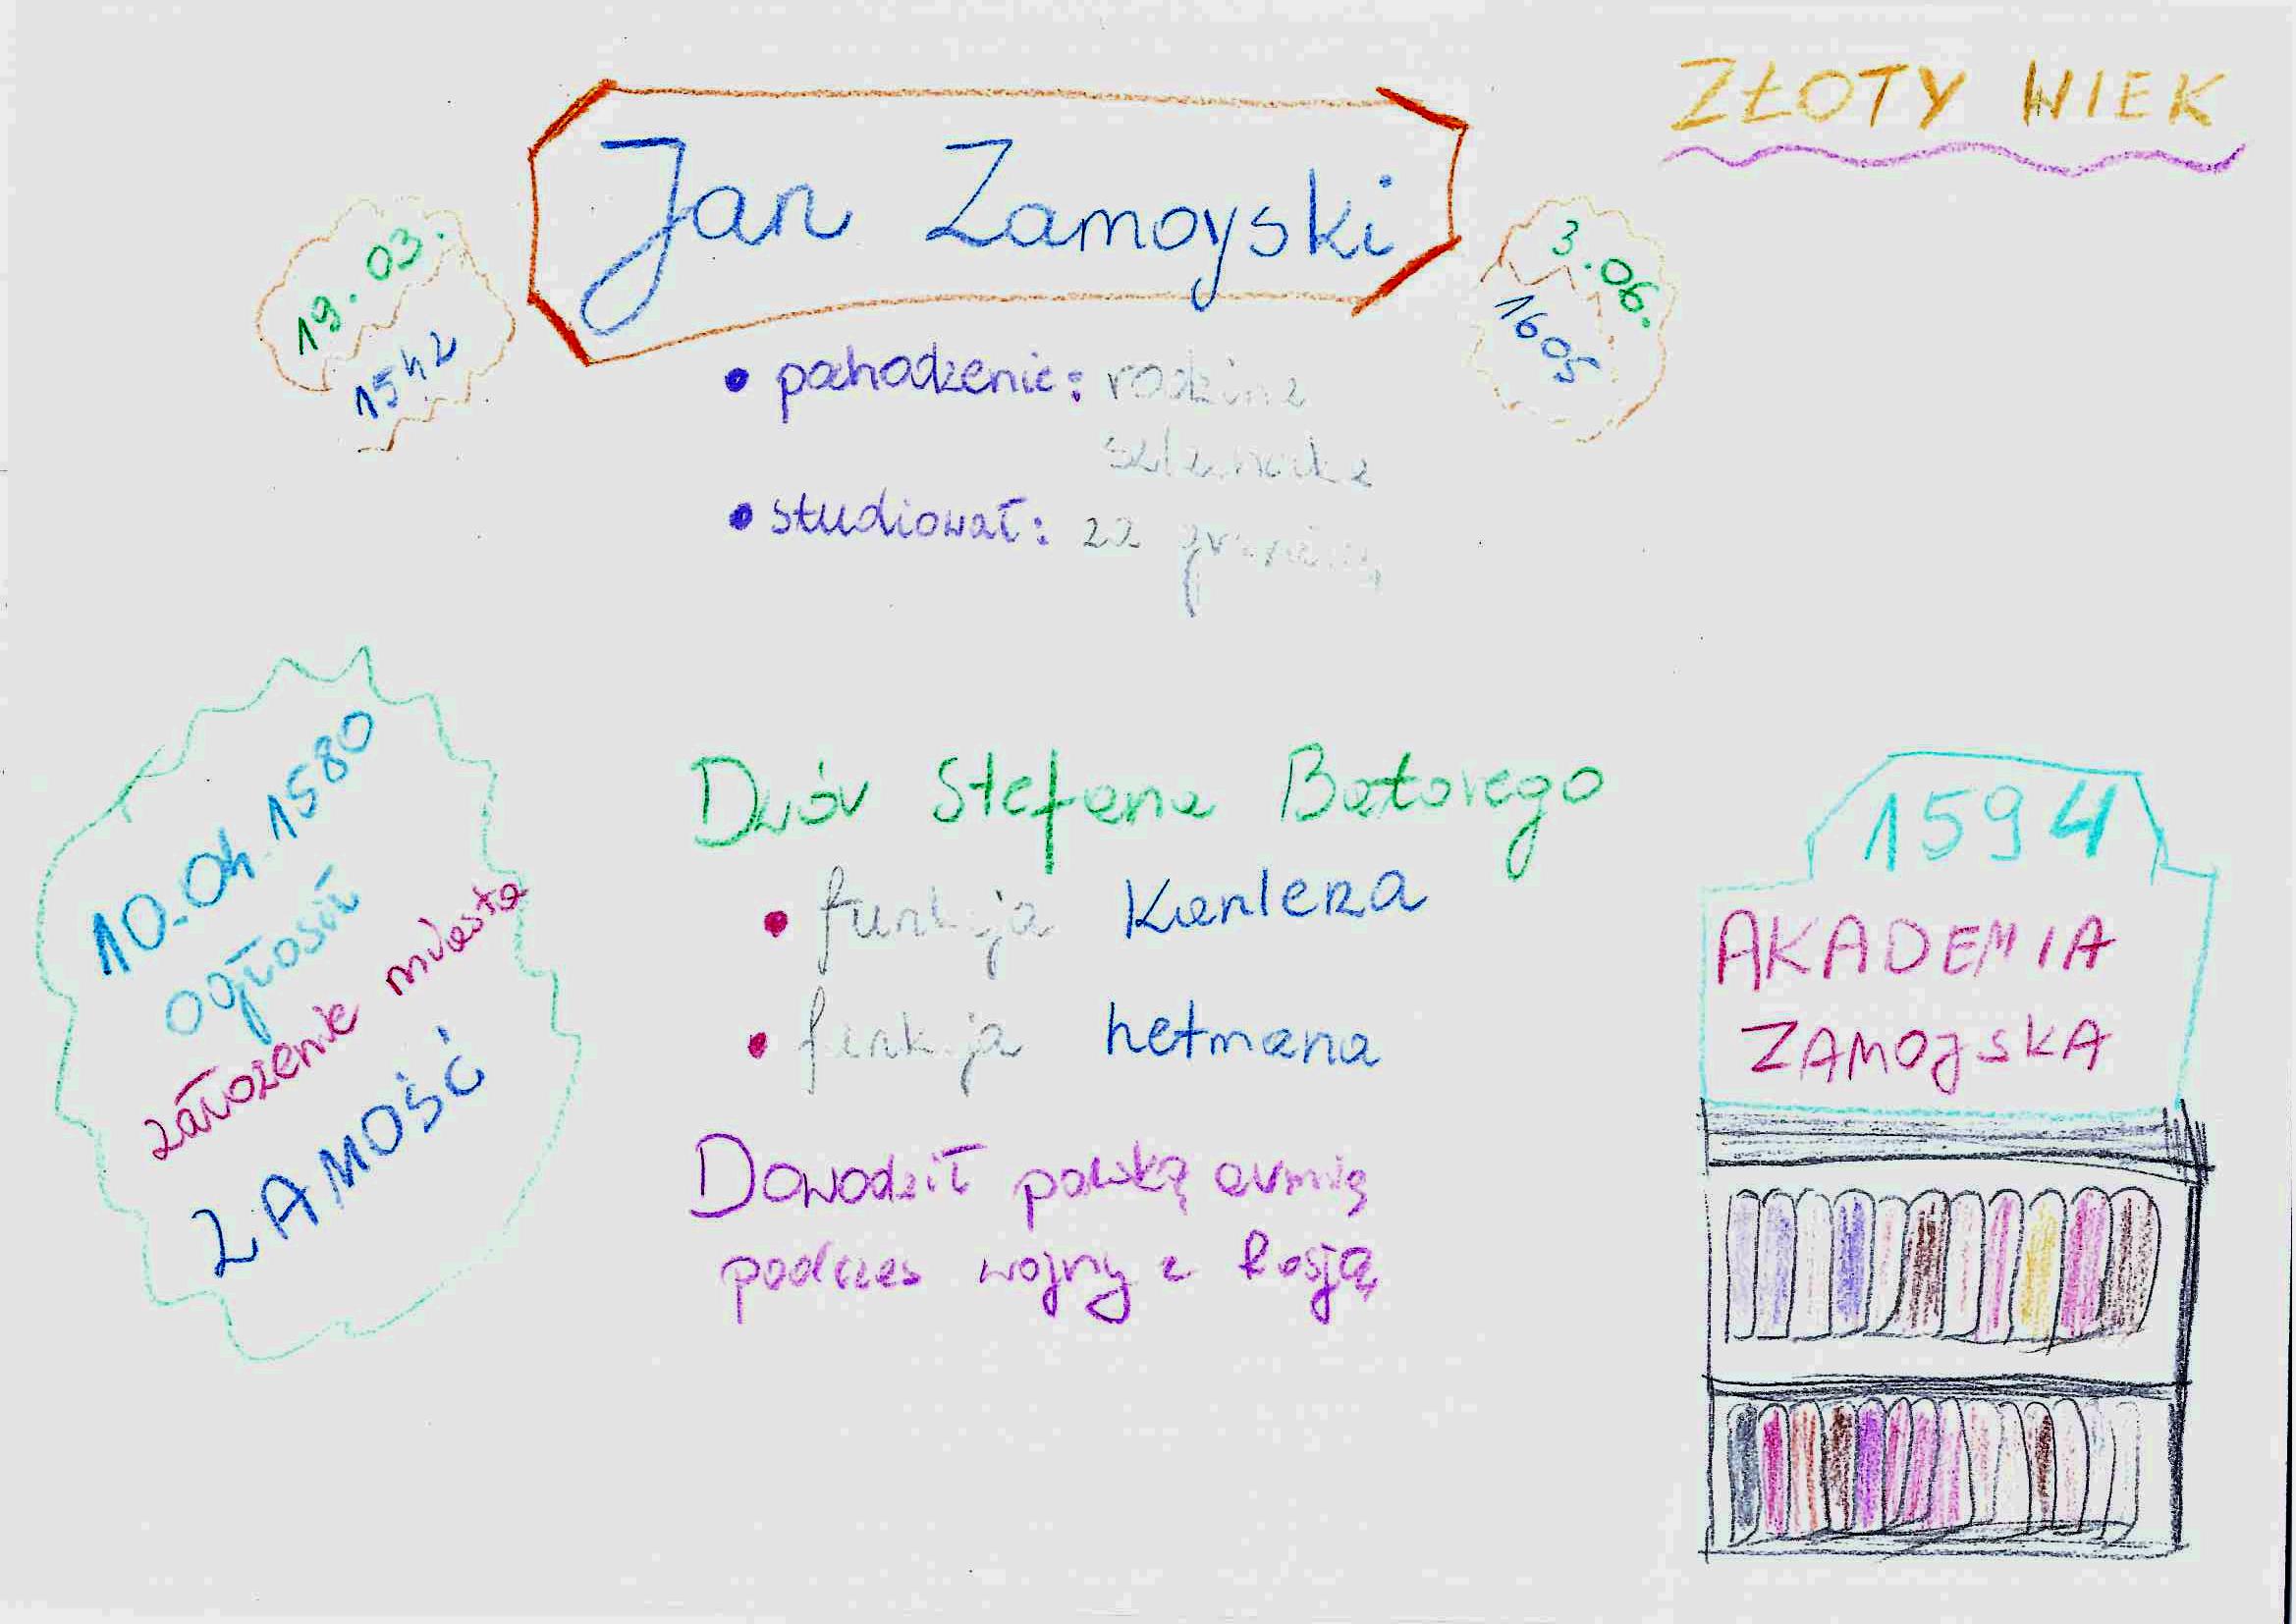 ZŁOTY WIEK
Jan Zamoyski
19.03.
1542
3.06.
1605
• pochodzenie: rodzina
szlachecka
• studiował: za granicą
10.04.1580
ogłosił
założenie miasta
ZAMOŚĆ
Dwór Stefana Batorego
• funkcja Kanlerza
• funkcja hetmana
Dowodził polską armią
podczas wojny z Rosją
1594
AKADEMIA
ZAMOJSKA